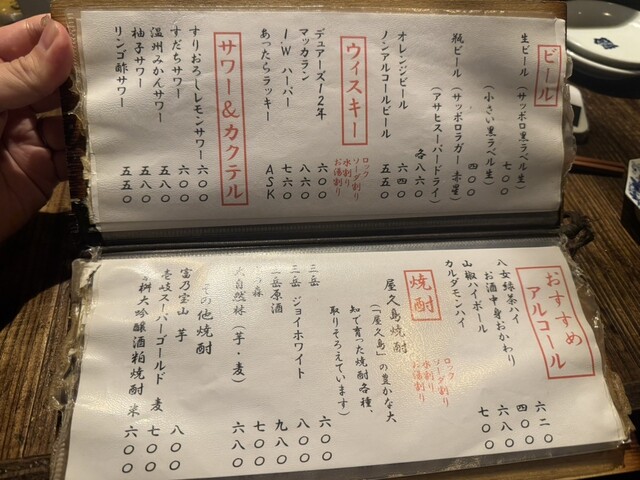 ビール
生ビール（サッポロ黒ラベル生） 七〇〇
（小さい黒ラベル生） 四〇〇
瓶ビール（サッポロラガー赤星）
（アサヒスーパードライ） 各八六〇
オレンジビール 六四〇
ノンアルコールビール 五五〇
ウィスキー
ロック
ソーダ割り
水割り
お湯割り
デュアーズ12年 六〇〇
マッカラン 八六〇
I.W ハーパー 七六〇
あったらラッキー ASK
サワー&カクテル
すりおろしレモンサワー 六〇〇
すだちサワー 六〇〇
温州みかんサワー 五八〇
柚子サワー 五八〇
リンゴ酢サワー 五五〇
おすすめ
アルコール
八女緑茶ハイ 六二〇
お酒中身おかわり 四〇〇
山椒ハイボール 六八〇
カルダモンハイ 七〇〇
焼酎
ロック
ソーダ割り
水割り
お湯割り
屋久島焼酎
（「屋久島」の豊かな大
知で育った焼酎各種、
取りそろえています）
三岳 六〇〇
三岳 ジョイホワイト 八〇〇
岳原酒 九八〇
森 七〇〇
大自然林（芋・麦） 六八〇
その他焼酎
富乃宝山 芋 八〇〇
壱岐スーパーゴールド 麦 七〇〇
桝大吟醸酒粕焼酎 米 六〇〇